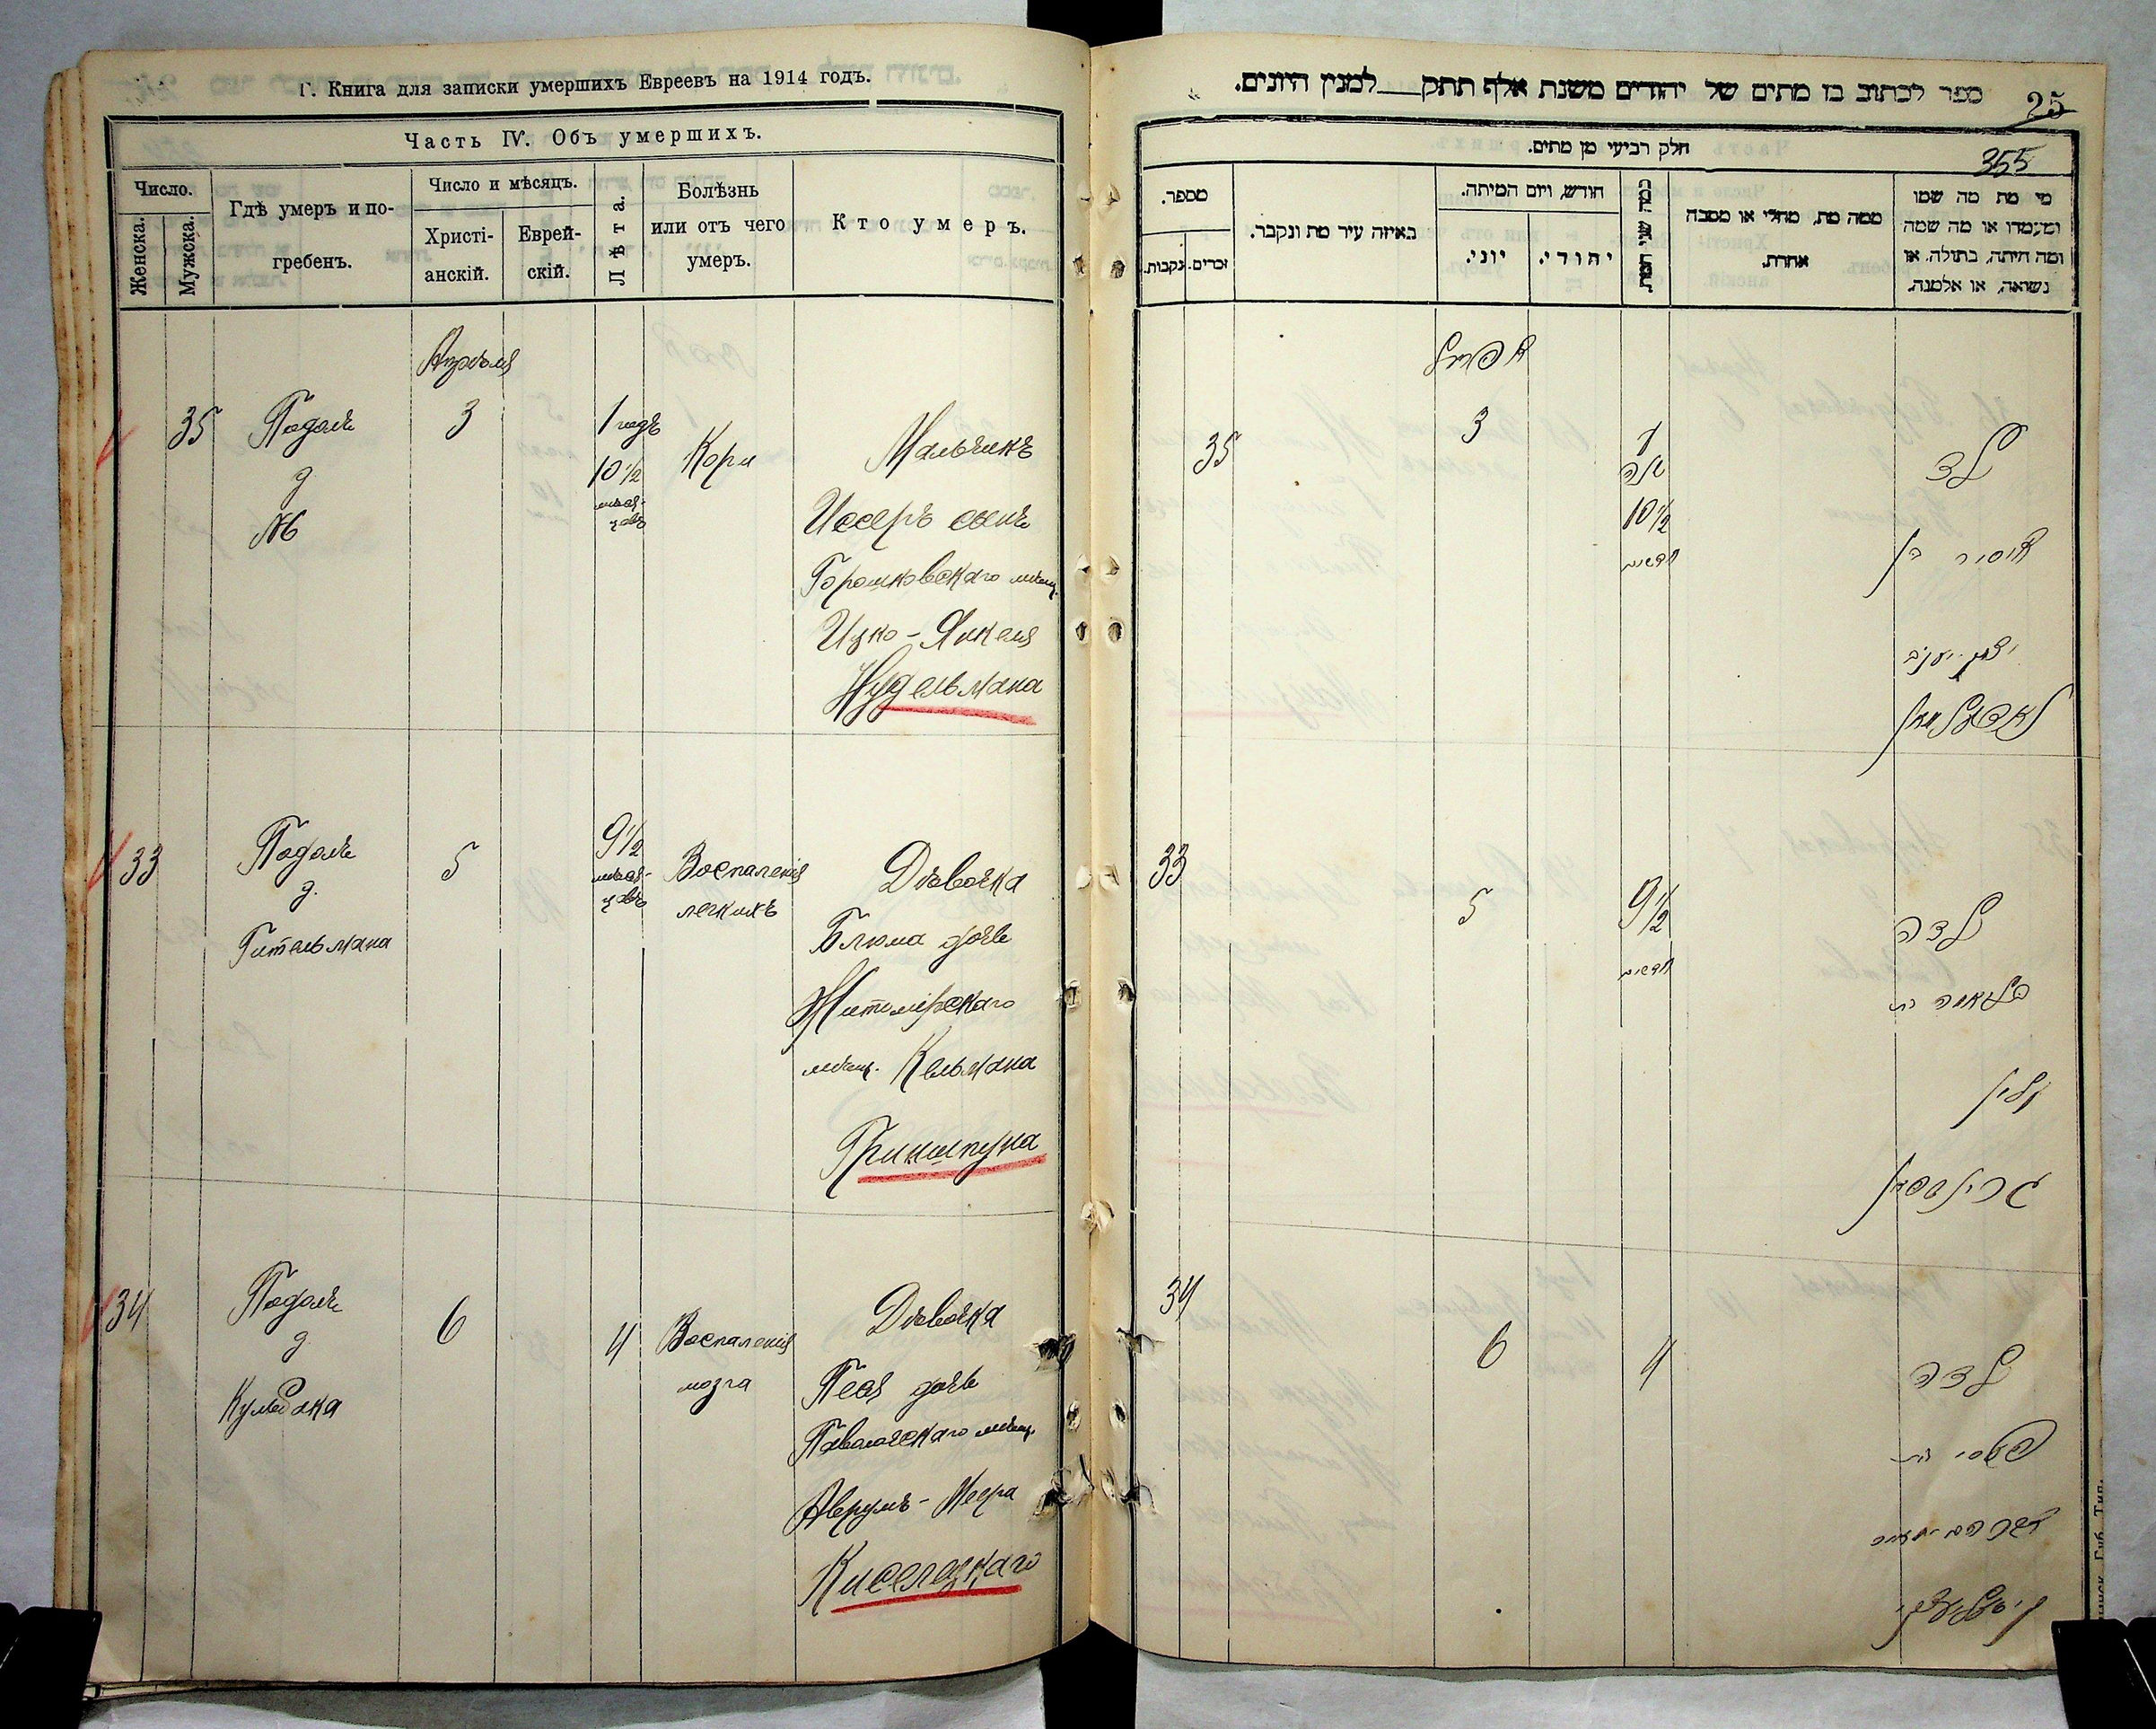 Г. Книга для записки умершихъ Евреевъ на 1914 годъ.
Часть IV. Объ умершихъ.
Число.
Женска.
Мужска.
Гдѣ умеръ и по-
гребенъ.
Число и мѣсяцъ.
Христі-
анскій.
Еврей-
скій.
Лѣта.
Болѣзнь
или отъ чего
умеръ.
Кто умеръ.
Апрѣля
35
Подолъ
д
№6
3
1 годъ
10½
мѣся-
цевъ
Кори
Мальчикъ
Иссеръ сынъ
Горошковскаго мѣщ.
Ицко-Янкеля
Нудельмана
33
Подолъ
д.
Гительмана
5
9½
мѣся-
цевъ
Воспаленія
легкихъ
Дѣвочка
Блюма дочь
Житомірскаго
мѣщ. Кельмана
Гриншпуна
34
Подолъ
д
6
4
Воспаленія
мозга
Дѣвочка
Песя дочь
Паволочскаго мѣщ.
Аврумъ-Меера
Киселецкаго
ספר לכתוב בו מתים של יהודים משנת אלף תתק למנין היונים.
25
חלק רביעי מן מתים.
355
מספר.
נקבות.
זכרים.
באיזה עיר מת ונקבר.
חודש, ויום המיתה.
יוני.
יהודי.
כמה שני המת.
ממה מת, מחלי או מסבה
אחרת.
מי מת מה שמו
ומעמדו או מה שמה
ומה היתה, בתולה, או
נשואה, או אלמנה.
אפריל
35
3
1
שנה
10½
חדשים
ילד
איסר בן
יצחק יעקב
נאדעלמאן
33
5
9½
חדשים
ילדה
בלומה בת
גרינשפון
34
6
4
ילדה
פעסי בת
אברהם מאיר
קיסעלעצקי